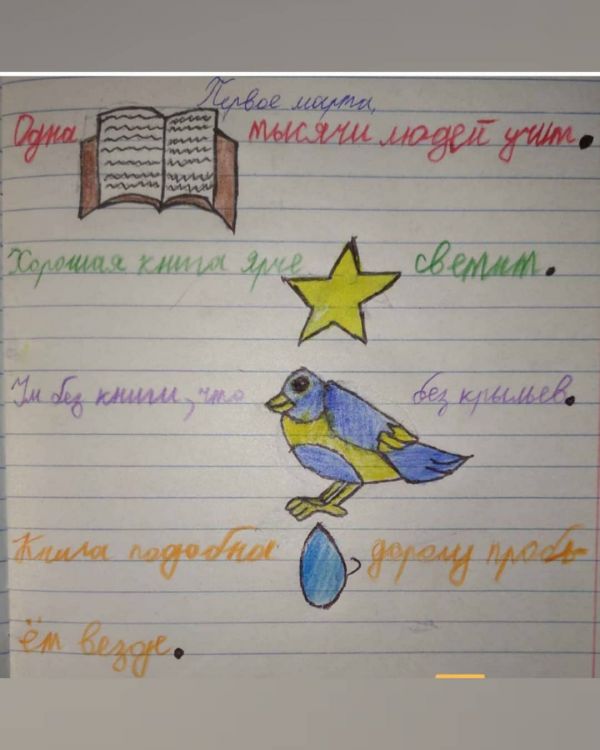 Первое марта.
Одна тысячи людей учит.
Хорошая книга ярче светит.
Ум без книги, что без крыльев.
Книга подобна , дорогу пробь-
ёт везде.